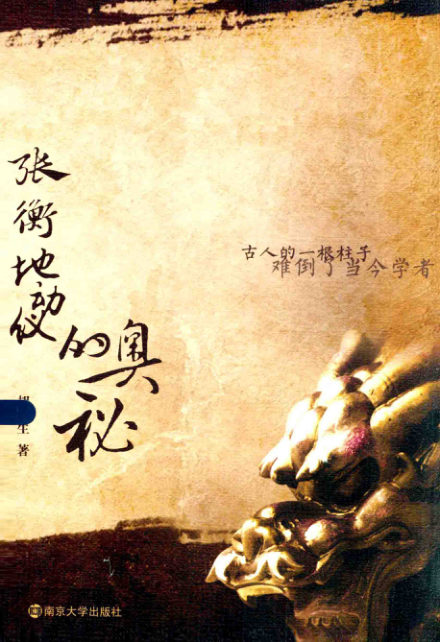 张衡地动仪
的奥秘
古人的一根柱子
难倒了当今学者
生 著
南京大学出版社